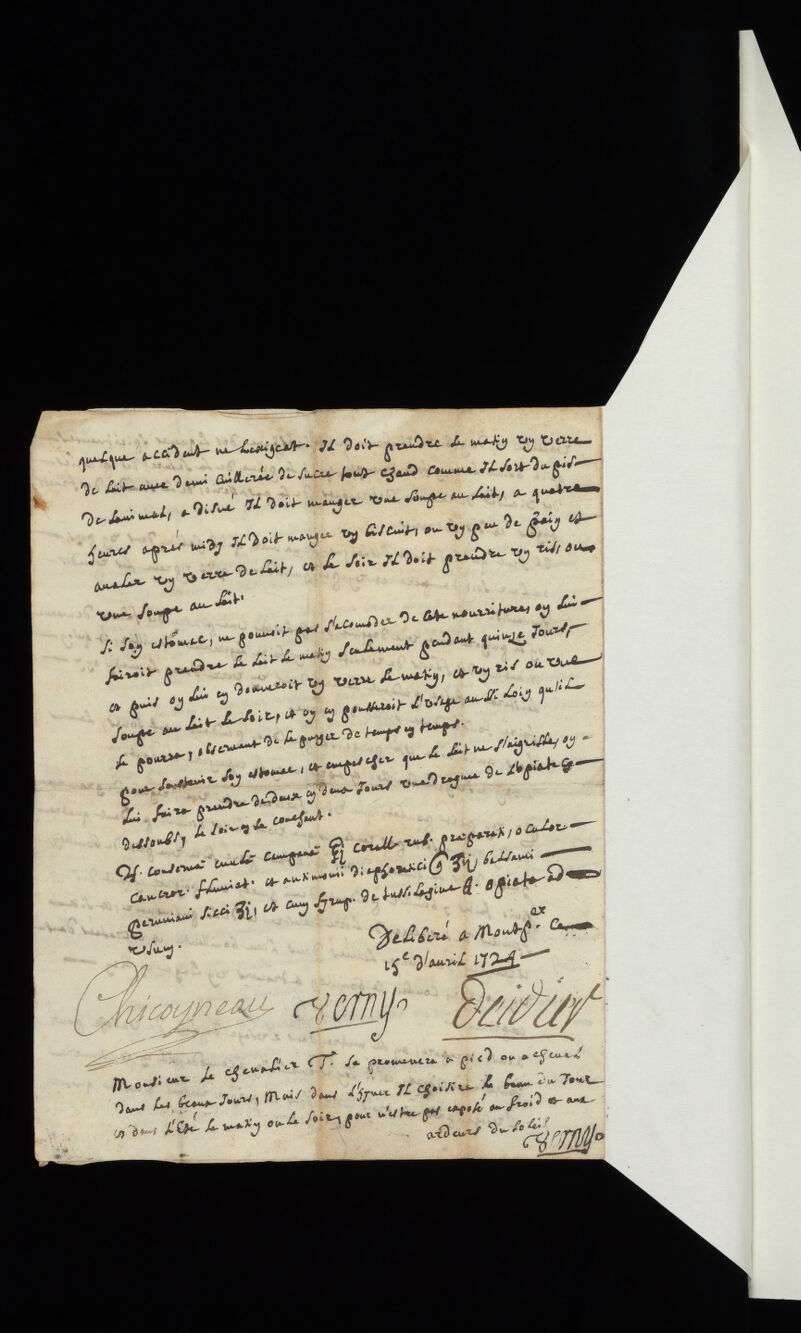 quelque accident ne lexigeat. Il doit prendre le matin un verre
de lait avec demi Cuillerée de sucre tout chaud comme Il sort du pis
de lanimal, a disné Il doit manger une soupe au lait, a quatre
heures aprés midy Il doit manger un biscuit, ou un peu de pain et
avaler un verre de lait, et le soir Il doit prendre un ris, ou
une soupe au lait.
Si son estomac, ne pouvoit pas s'acomoder de cete nourriture, on lui
fairoit prendre le lait le matin seulement pendant quinze Jours,
et puis on lui en donneroit un verre le matin, et un ris ou une
soupe au lait le soir, et on en pousseroit l'usage au si loin qu'il
se pourra, observant de le purger de temps en temps.
pour soustenir son estomac, et empescher que le lait ne s'aigrisse, on
lui faira prendre de deux en deux Jours une dragme de lopiate cy
dessoubs, le soir en se couchant.
♃. conservæ enulæ campanæ ℥j corall. rub. præparat, oculor.
cancror. fluviat. et antimonii diaphoretici @ ʒij balsami
peruviani sicci ʒj, et cum syrup. de tussilagine fl. opiata ad
usum.
Deliberé a Montp.er ce
15e d'avril 1724
Chicoyneau Verny Deidier
Monsieur le chevalier T. se promenera a pied ou a cheval
dans les beaux Jours, Mais dans l'hyver Il choisira le beau du Jour
et dans l'Esté le matin ou le soir, pour n'estre pas exposé au froid et aux
ardeurs du soleil
Verny